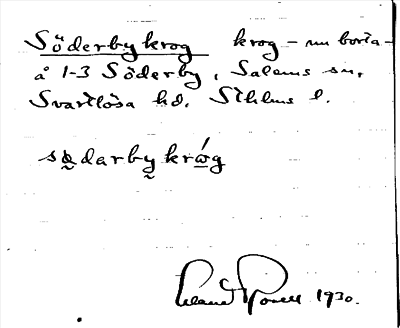 Söderby krog krog – nu borta –
å 1-3 Söderby, Salems sn,
Svartlösa hd. Sthlms l.
sødarby kråg
1930.